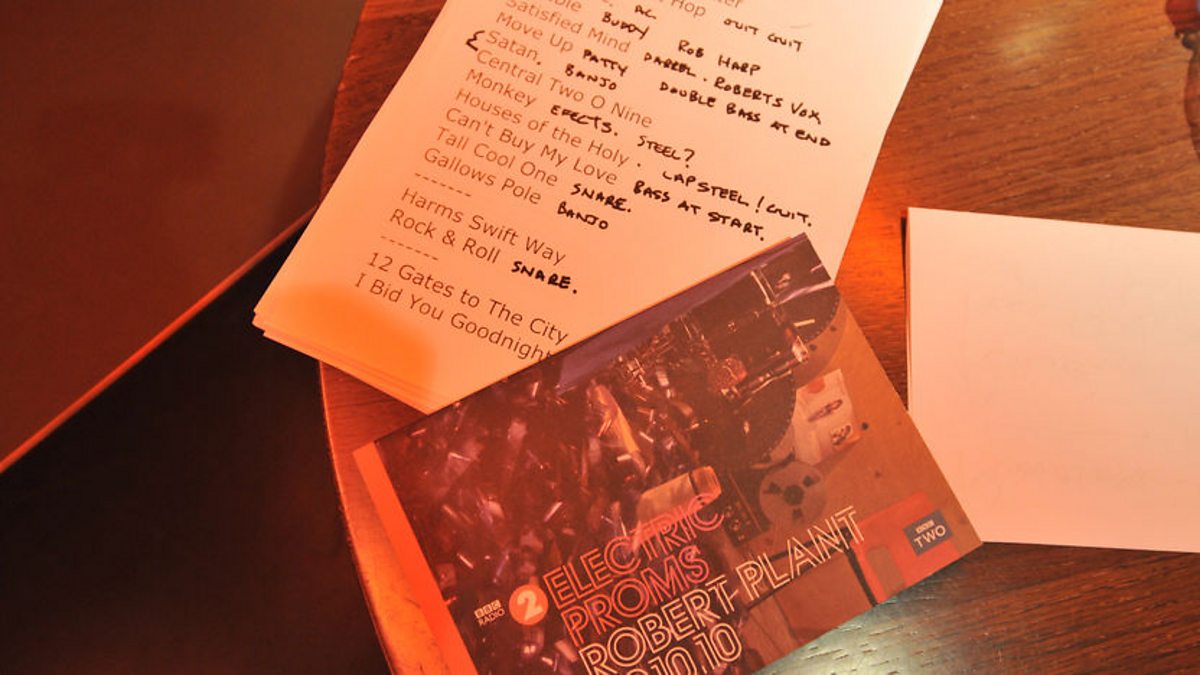 Hop OUIT GUIT
AC
BUDDY ROB HARP
Satisfied Mind DARREL. ROBERTS VOX
Move Up PATTY DOUBLE BASS AT END
Satan. BANJO
Central Two O Nine
Monkey EFECTS. STEEL?
Houses of the Holy. LAP STEEL / GUIT.
Can't Buy My Love BASS AT START.
Tall Cool One SNARE.
Gallows Pole BANJO
-------
Harms Swift Way
Rock & Roll SNARE.
------
12 Gates to The City
I Bid You Goodnight
BBC RADIO 2
ELECTRIC
PROMS
ROBERT PLANT
10.10
BBC TWO